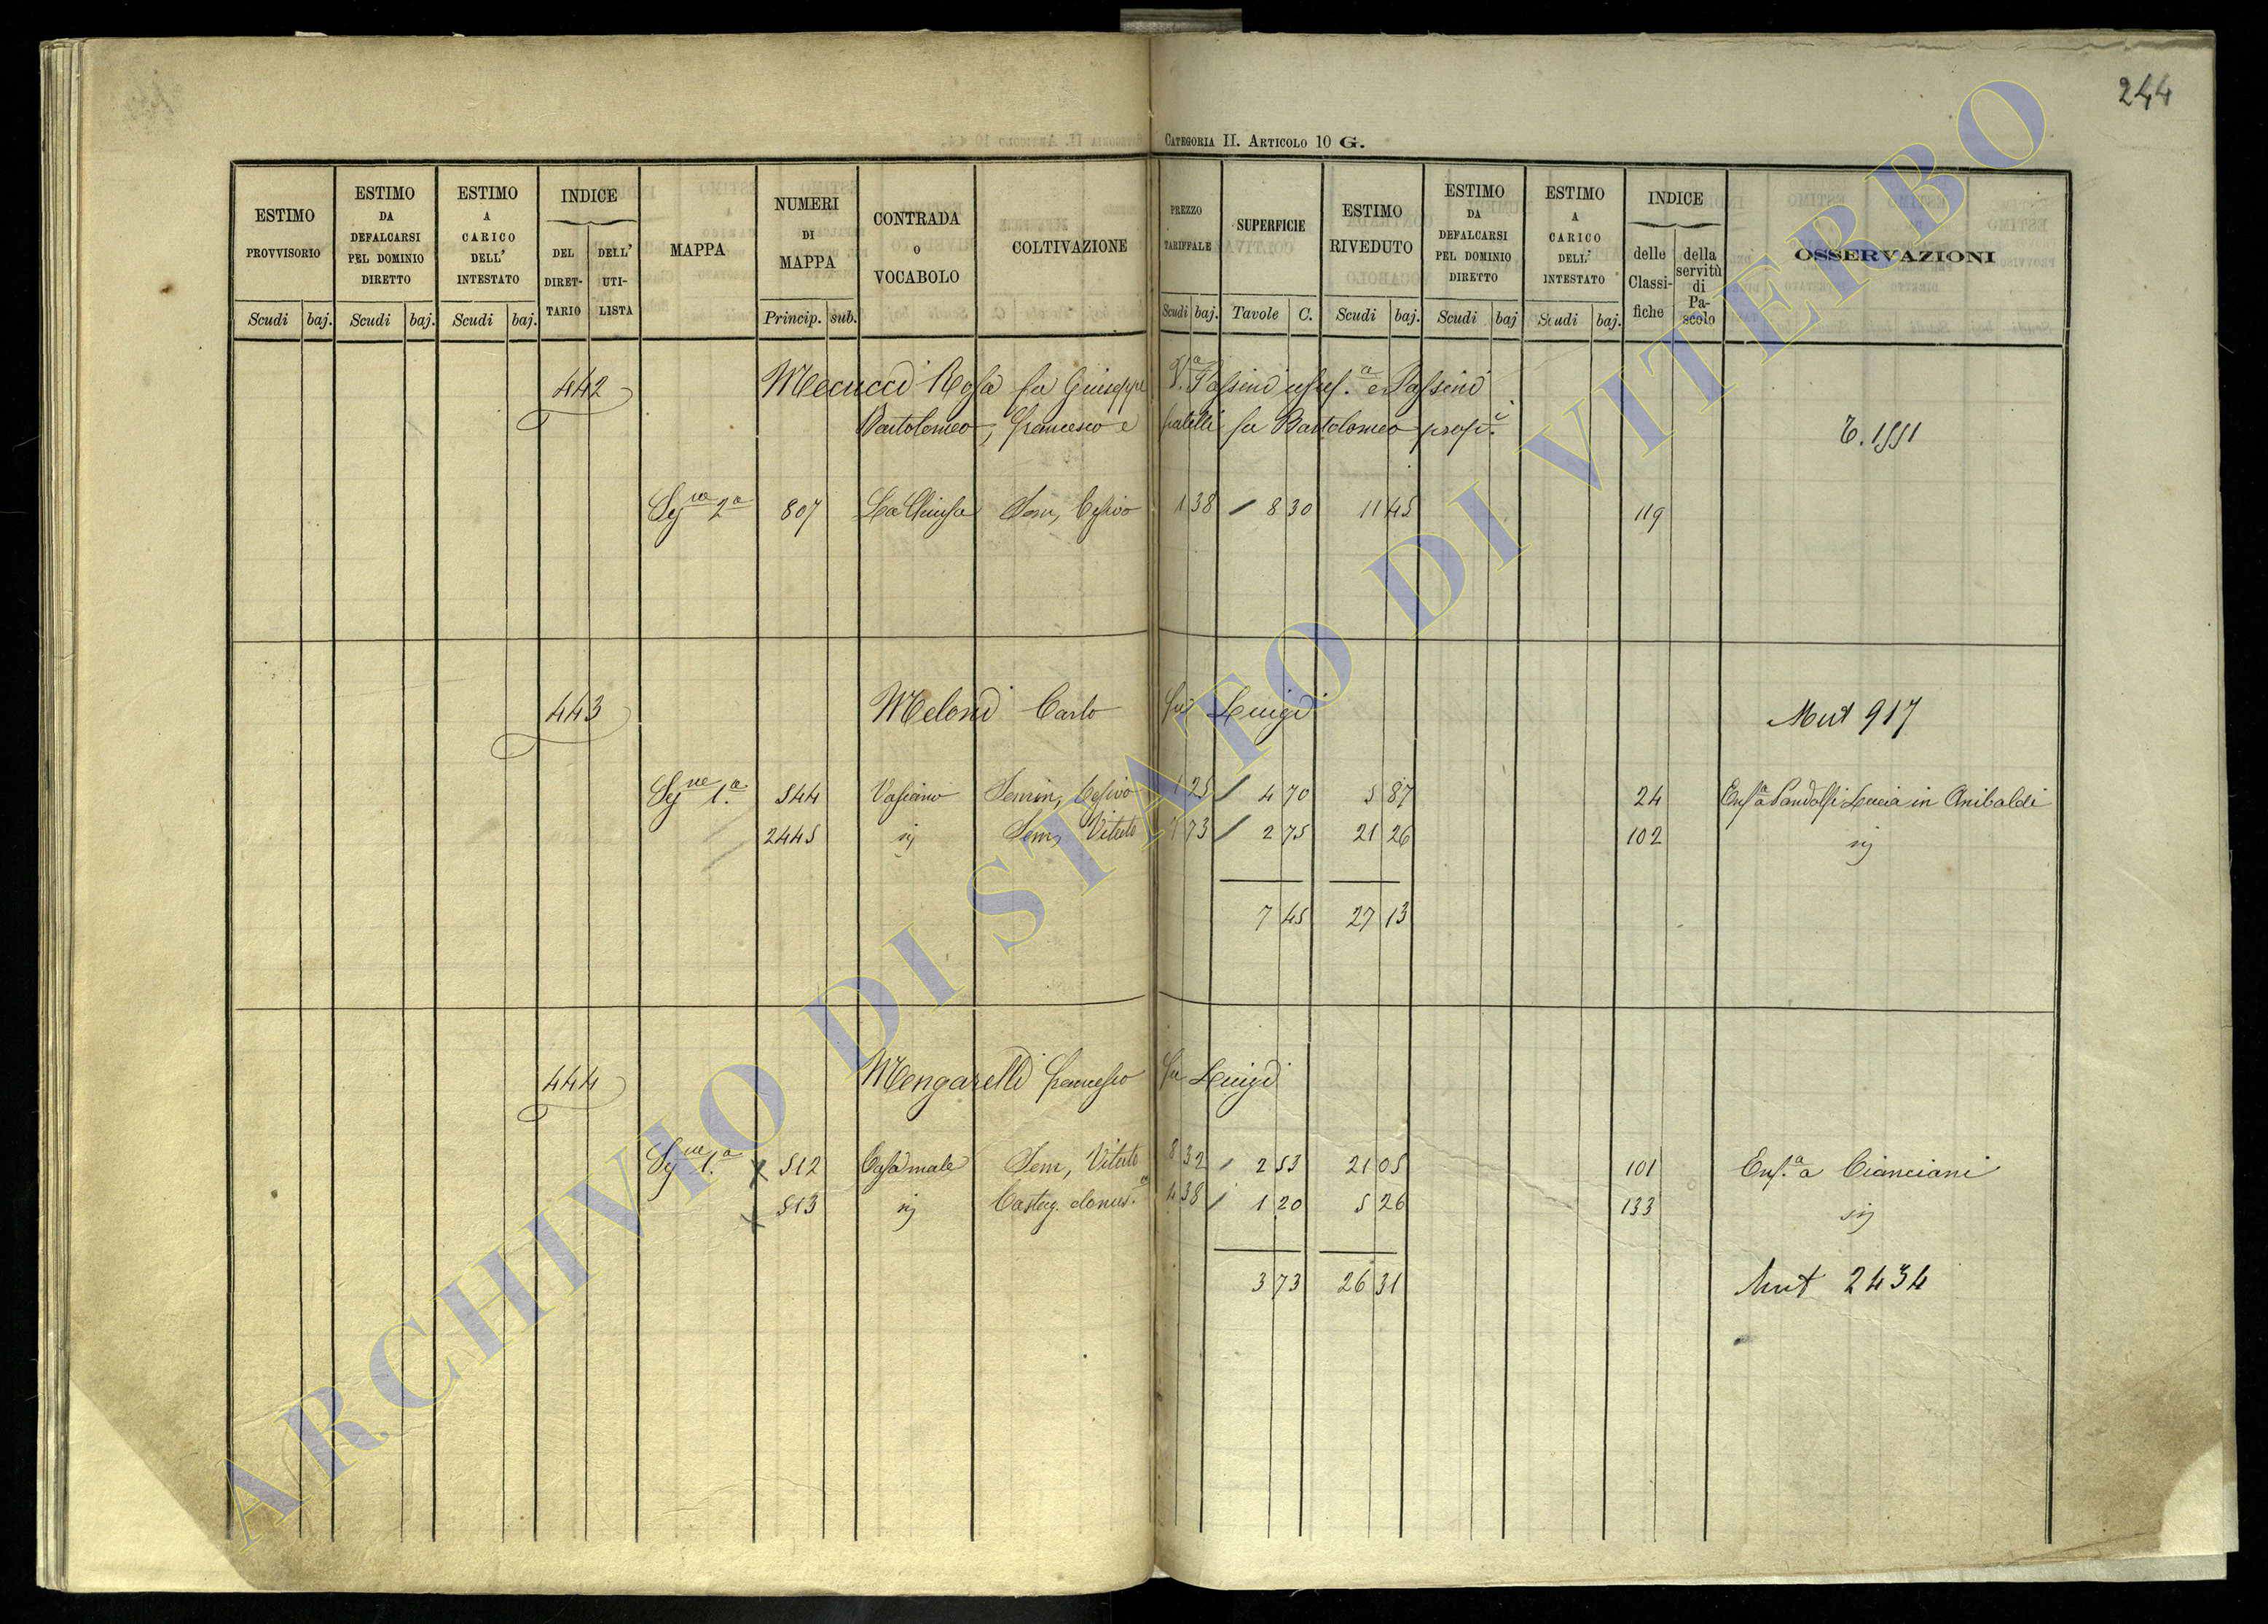 244
CATEGORIA II. ARTICOLO 10 G.
ESTIMO PROVVISORIO
ESTIMO DA DEFALCARSI PEL DOMINIO DIRETTO
ESTIMO A CARICO DELL' INTESTATO
INDICE
DEL DIRETTARIO
DELL' UTILISTA
MAPPA
NUMERI DI MAPPA
CONTRADA O VOCABOLO
COLTIVAZIONE
PREZZO TARIFFALE
SUPERFICIE
ESTIMO RIVEDUTO
ESTIMO DA DEFALCARSI PEL DOMINIO DIRETTO
ESTIMO A CARICO DELL' INTESTATO
INDICE
delle Classifiche
della servitù di Pascolo
OSSERVAZIONI
Scudi baj. Scudi baj. Scudi baj. Princip. sub. Scudi baj. Tavole C. Scudi baj. Scudi baj Scudi baj.
442 Mecucci Rosa fu Giuseppe V.a Passini usuf.a e Passini
Bartolomeo, Francesco e fratelli fu Bartolomeo prop.i
T. 1551
Sez.ne 2a 807 La Chiusa Sem, Cesivo 1 38 8 30 11 45 119
443 Meloni Carlo fu Luigi Mut 917
Sez.ne 1.a 544 Vasiano Semin, Cesivo 1 25 4 70 5 87 24 Enf.a a Pandolfi Lucia in Anibaldi
2445 sij Sem, Vitato 7 73 2 75 21 26 102 sij
7 45 27 13
444 Mengarelli Francesco fu Luigi
Sez.ne 1.a x 512 Casamale Sem, Vitato 8 32 2 53 21 05 101 Enf.a a Cianciani
x 513 sij Castag. domes.o 4 38 1 20 5 26 133 sij
3 73 26 31
Mut 2434
ARCHIVIO DI STATO DI VITERBO